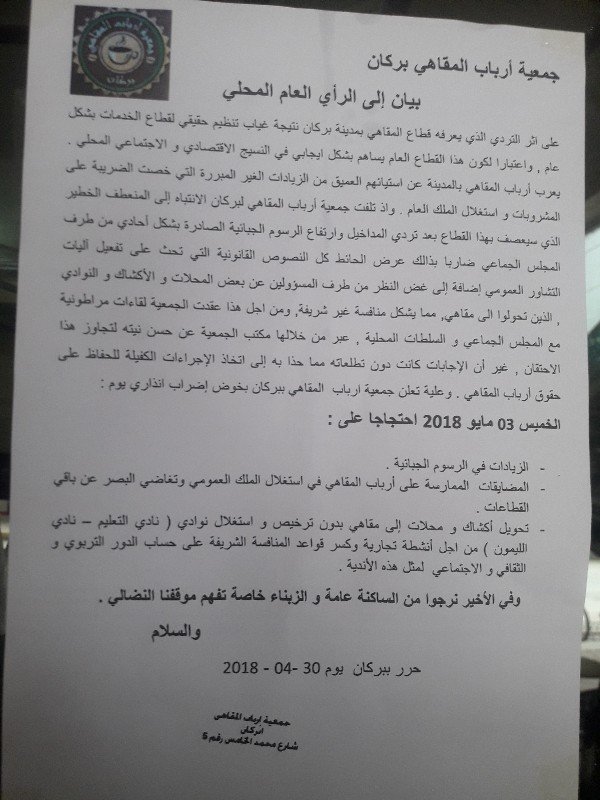 جمعية أرباب المقاهي
بركان
جمعية أرباب المقاهي بركان
بيان إلى الرأي العام المحلي
على اثر التردي الذي يعرفه قطاع المقاهي بمدينة بركان نتيجة غياب تنظيم حقيقي لقطاع الخدمات بشكل
عام , واعتبارا لكون هذا القطاع العام يساهم بشكل ايجابي في النسيج الاقتصادي و الاجتماعي المحلي .
يعرب أرباب المقاهي بالمدينة عن استيائهم العميق من الزيادات الغير المبررة التي خصت الضريبة على
المشروبات و استغلال الملك العام . واذ تلفت جمعية أرباب المقاهي لبركان الانتباه إلى المنعطف الخطير
الذي سيعصف بهذا القطاع بعد تردي المداخيل وارتفاع الرسوم الجبائية الصادرة بشكل أحادي من طرف
المجلس الجماعي ضاربا بذالك عرض الحائط كل النصوص القانونية التي تحث على تفعيل آليات
التشاور العمومي إضافة إلى غض النظر من طرف المسؤولين عن بعض المحلات و الأكشاك و النوادي
, الذين تحولوا الى مقاهي, مما يشكل منافسة غير شريفة, ومن اجل هذا عقدت الجمعية لقاءات مراطونية
مع المجلس الجماعي و السلطات المحلية , عبر من خلالها مكتب الجمعية عن حسن نيته لتجاوز هذا
الاحتقان , غير أن الإجابات كانت دون تطلعاته مما حذا به إلى اتخاذ الإجراءات الكفيلة للحفاظ على
حقوق أرباب المقاهي . وعلية تعلن جمعية ارباب المقاهي ببركان بخوض إضراب انذاري يوم :
الخميس 03 مايو 2018 احتجاجا على :
- الزيادات في الرسوم الجبائية .
- المضايقات الممارسة على أرباب المقاهي في استغلال الملك العمومي وتغاضي البصر عن باقي
القطاعات .
- تحويل أكشاك و محلات إلى مقاهي بدون ترخيص و استغلال نوادي ( نادي التعليم – نادي
الليمون ) من اجل أنشطة تجارية وكسر قواعد المنافسة الشريفة على حساب الدور التربوي و
الثقافي و الاجتماعي لمثل هذه الأندية .
وفي الأخير نرجوا من الساكنة عامة و الزبناء خاصة تفهم موقفنا النضالي .
والسلام
حرر ببركان يوم 30 -04 - 2018
جمعية ارباب المقاهي
ابركان
شارع محمد الخامس رقم 5